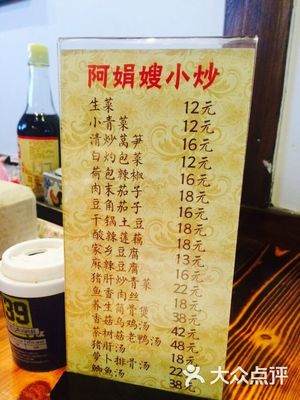 阿娟嫂小炒
生菜 12元
小青菜 12元
清炒莴笋 16元
白灼包菜 12元
荷包辣椒 16元
肉末茄子 18元
豆角茄子 16元
干锅土豆 18元
酸辣莲藕 18元
家乡豆腐 13元
麻辣豆腐 16元
猪肝炒青菜 22元
鱼香肉丝 18元
养生筒骨煲 38元
香菇乌鸡汤 42元
茶树菇老鸭汤 48元
猪肝汤 18元
萝卜排骨汤 22
鲫鱼汤 38元
39
大众点评